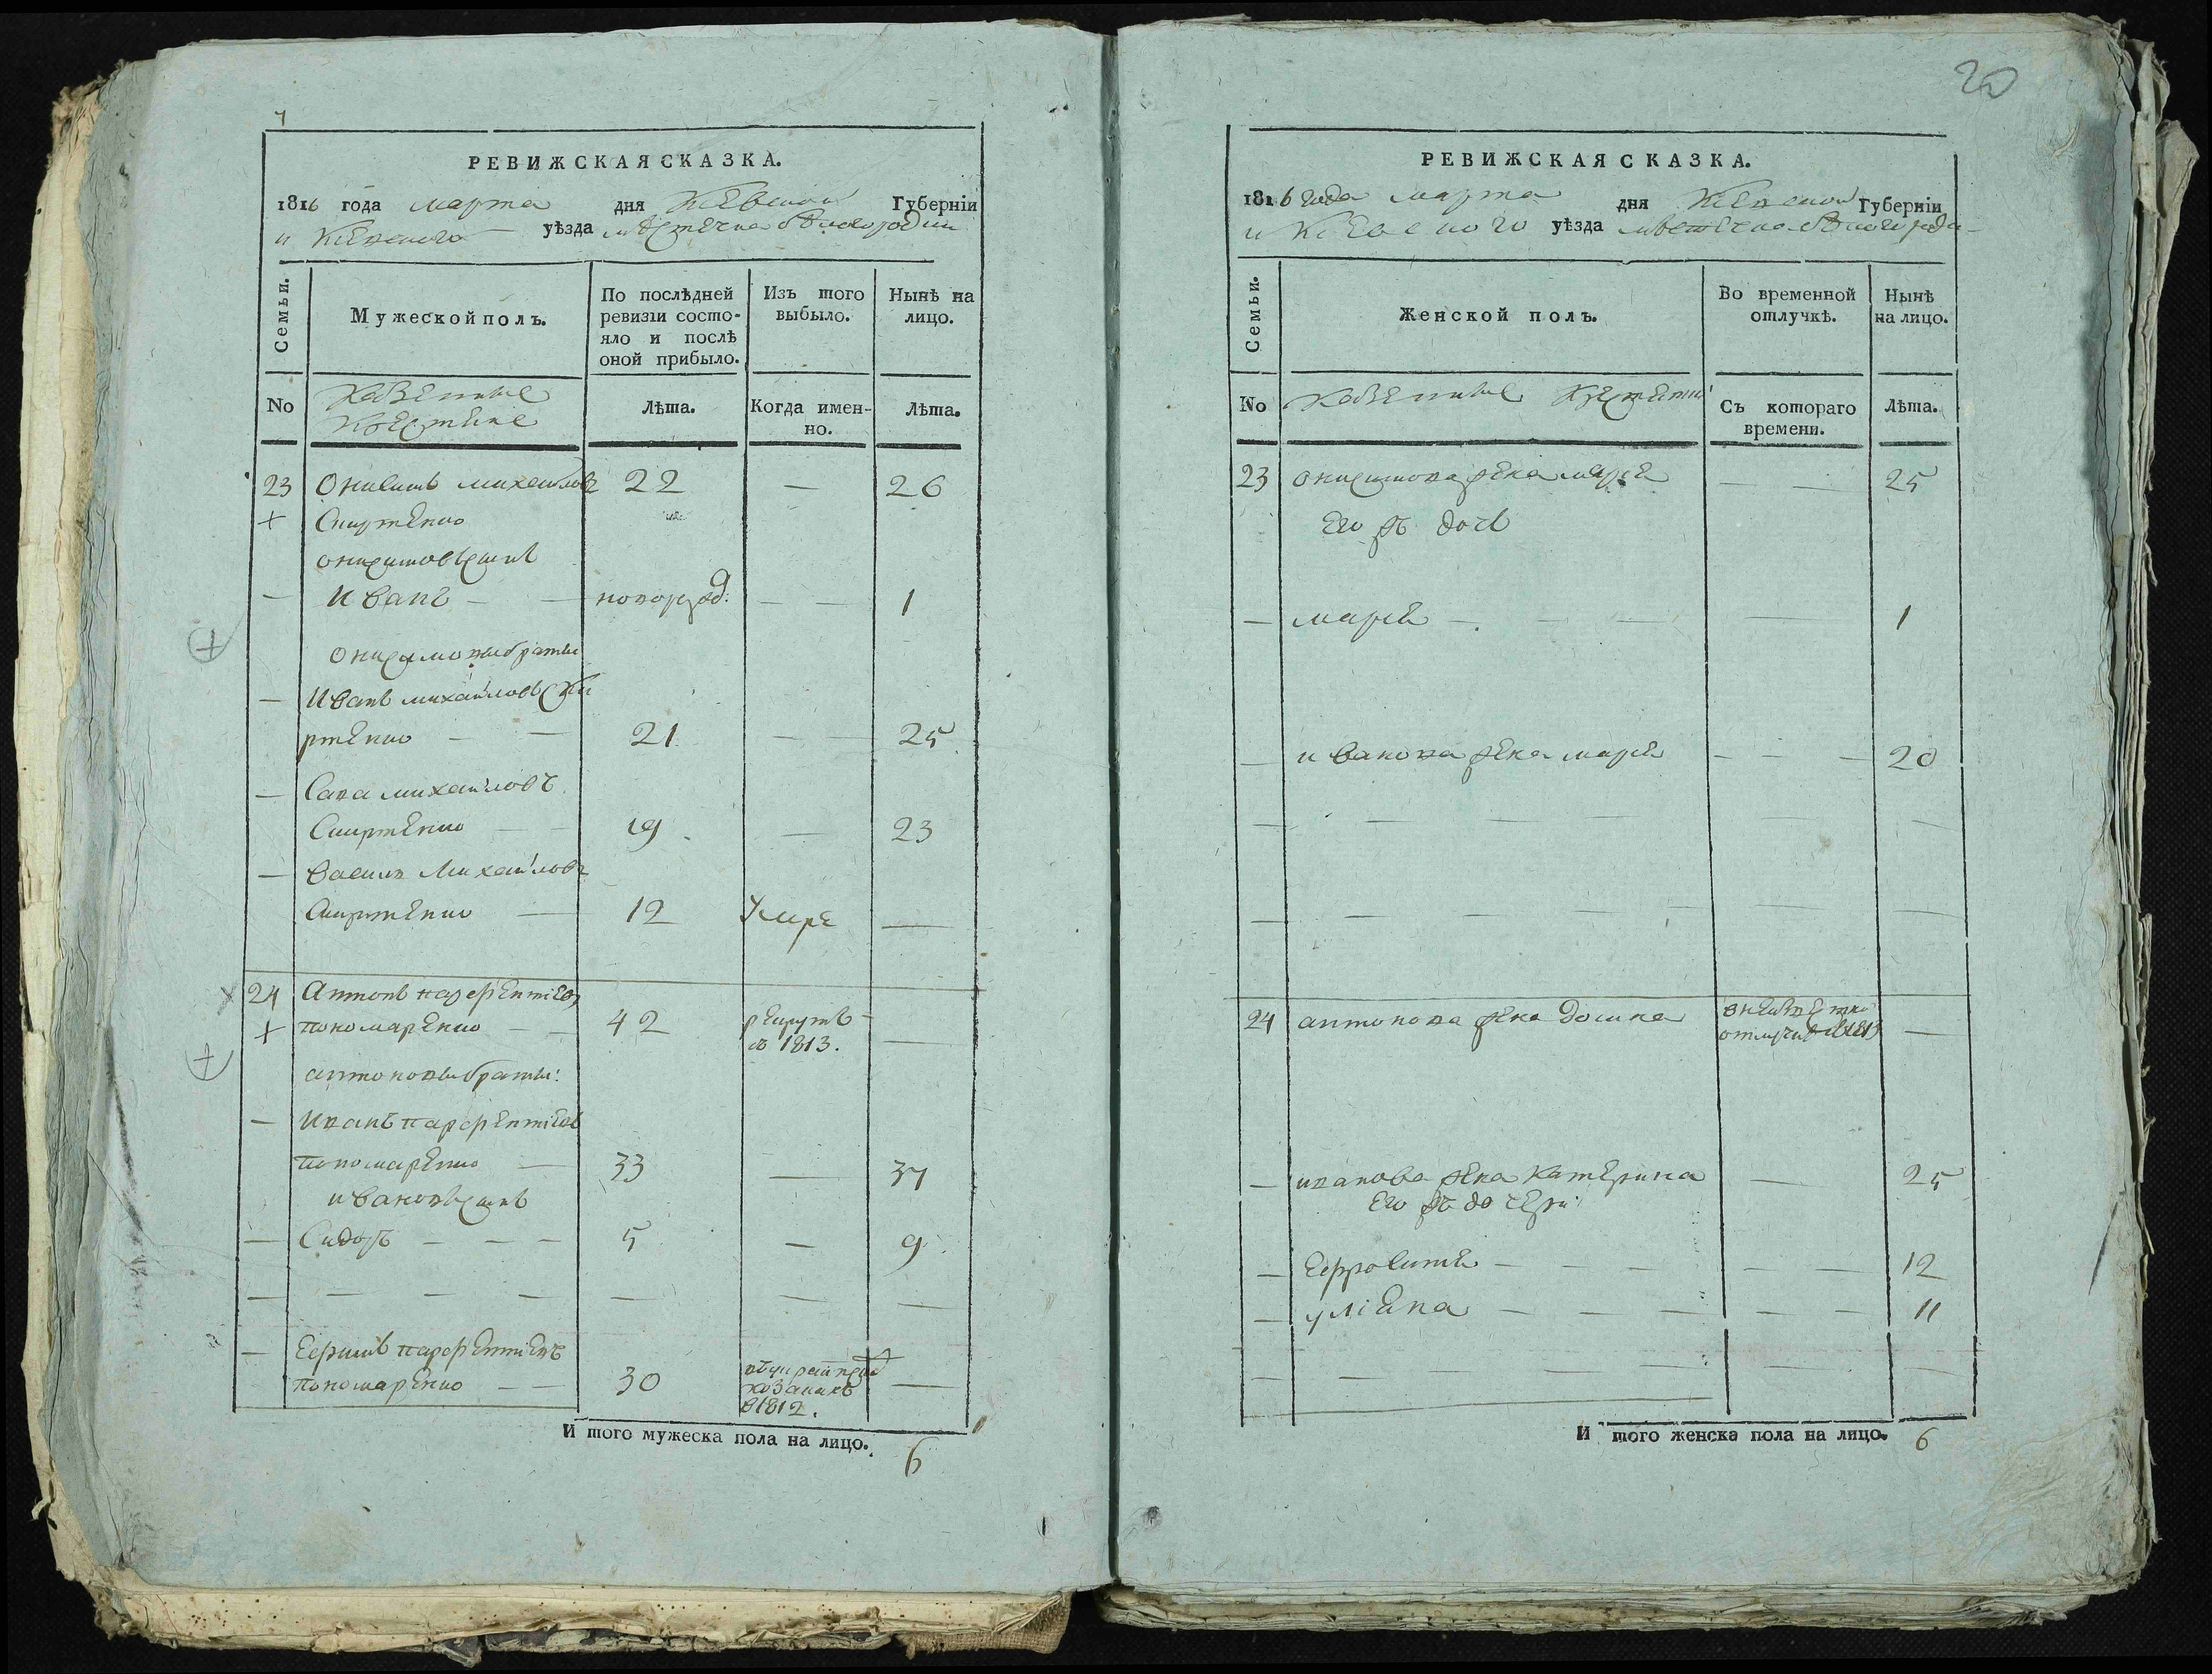 20
РЕВИЖСКАЯ СКАЗКА.
1816 года марта дня Киевской Губерніи
и Киевского уѣзда мѣстечка бѣлогородки
Семьи.
Мужеской полъ.
По послѣдней ревизіи состояло и послѣ оной прибыло.
Изъ того выбыло.
Нынѣ на лицо.
No
Казенные
Крестяне
Лѣта.
Когда именно.
Лѣта.
23 Онисимъ михайловъ 22 — 26
+
онисимовъ сынъ
— Иванъ — новород. — — 1
онисимовы браты
— Иванъ михайловъ
21 — 25
— Сава михайловъ
19 — 23
— Василь Михайловъ
12 Умре —
24 Антонъ парфентіевъ
+ пономаренко — — 42 рекрутъ въ 1813. —
антоновы браты:
— Иванъ парфентіевъ
пономаренко — 33 — 37
ивановъ сынъ
— Сидоръ — — — 5 — 9
— Ефимъ парфентіевъ
пономаренко — — 30 козакъ в 1812. —
И того мужеска пола на лицо. 6
РЕВИЖСКАЯ СКАЗКА.
1816 года марта дня Киевской Губерніи
и Киевского уѣзда мѣстечка бѣлогородки
Семьи.
Женской полъ.
Во временной отлучкѣ.
Нынѣ на лицо.
No
Казенные Крестяне
Съ котораго времени.
Лѣта.
23 онисимова жена — — 25
Его дочь
— — — — 1
— иванова жена — — — 20
24 антонова жена 1813 —
— иванова жена Катерина — 25
Его дочери
— Ефросиния — — — — — 12
— улияна — — — — — 11
И того женска пола на лицо. 6